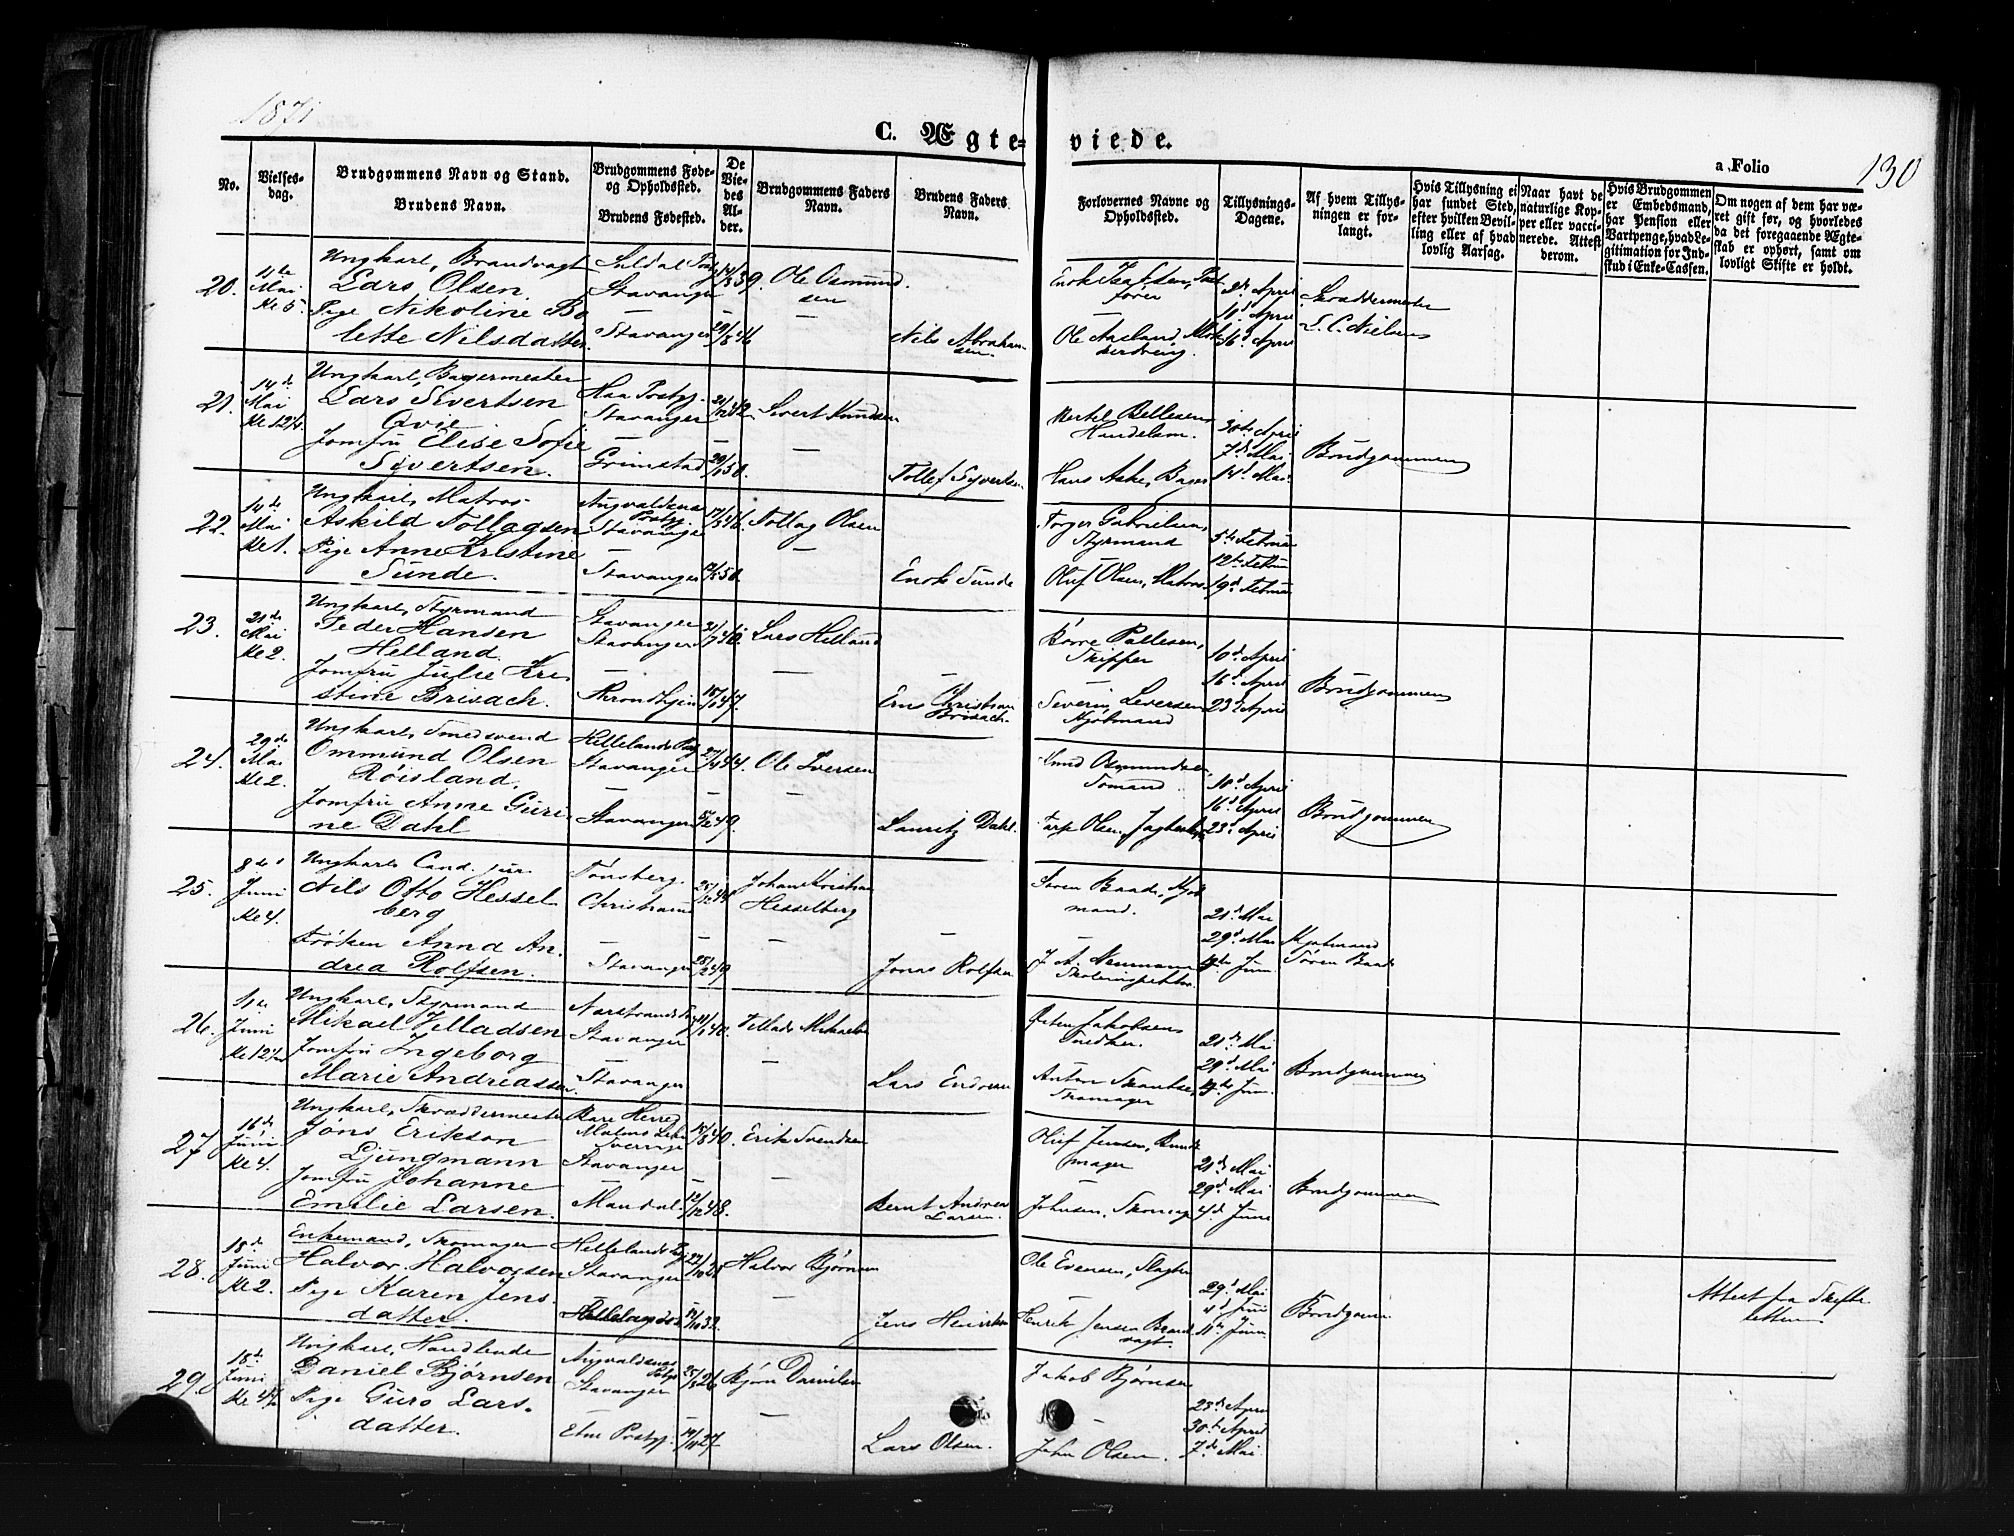 1871
C. Ægte-
viede.
a. Folio
130
No.
Vielses-
dag.
Brudgommens Navn og Stand.
Brudens Navn.
Brudgommens Føde-
og Opholdssted.
Brudens Fødested.
De
Vie-
des
Al-
der.
Brudgommens Faders
Navn.
Brudens Faders
Navn.
Forlovernes Navne og
Opholdssted.
Tillysnings-
Dagene.
Af hvem Tillys-
ningen er for-
langt.
Hvis Tillysning ei
har fundet Sted,
efter hvilken Bevil-
ling eller af hvad
lovlig Aarsag.
Naar havt de
naturlige Kop-
per eller vacci-
nerede. Attest
derom.
Hvis Brudgommen
er Embedsmand,
har Pension eller
Vartpenge, hvad Le-
gitimation for Ind-
skud i Enke-Cassen.
Om nogen af dem har væ-
ret gift før, og hvorledes
da det foregaaende Ægte-
skab er ophørt, samt om
lovligt Skifte er holdt.
20.
Mai
Kl 5.
Ungkarl, Brandvagt
Lars Olsen.
Pige Nikoline Bo
lette Nilsdatter.
Suldal
Stavanger
Stavanger
Ole Osmund
sen
Nils Abraham
sen.
8de April
10d April
16d April
Skræddermester
L. C. Nielsen
21.
14de
Mai
Kl 12¼
Ungkarl, Bagermester
Lars Sivertsen
Qvie
Jomfru Elise Sofie
Syvertsen.
Haa Prstgj.
Stavanger
Grimstad
Sivert Knudsen
Tollef Syvertsen
Hans Aske, Bager
30te April
7de Mai
14d Mai
Brudgommen
22.
14de
Mai
Kl 1.
Ungkarl, Matros
Askild Tollagsen
Pige Anne Kristine
Sunde.
Augvaldsnæs
Prstgj.
Stavanger
Stavanger
Tollag Olsen
Enok Sunde
Torger Gabrielsen,
Styrmand
Oluf Olsen, Matros
5te Februar
12te Februar
19d Februar
23.
21de
Mai
Kl 2.
Ungkarl, Styrmand
Peder Hansen
Helland.
Jomfru Julie Kri
stine Brisach.
Stavanger
Stavanger
Throndhjem
Lars Helland
Christian
Brisach.
Børre Pallesen,
Skipper
Severin Seversen
Kjøbmand
10d April
16d April
23d April
Brudgommen
24.
29de
Mai
Kl 2.
Ungkarl, Smedsvend
Ommund Olsen
Røisland.
Jomfru Anne Guri
ne Dahl
Hellelands Prstg
Stavanger
Stavanger
Ole Iversen
Lauritz Dahl.
Knud Osmundsen,
Tomand.
10d April
16d April
23d April
Brudgommen
25.
8de
Juni
Kl 4.
Ungkarl, Cand. jur.
Nils Otto Hessel
berg
Frøken Anna An.
drea Rolfsen.
Tønsberg.
Christiania
Stavanger
Johan Kristian
Hesselberg
Jonas Rolfsen
Søren Baade, Kjøb
mand.
21d Mai
29d Mai
4de Juni
Kjøbmand
Søren Baade
26.
11te
Juni
Ungkarl, Styrmand
Mikael Velladsen
Jomfru Ingeborg
Marie Andreassen
Stavanger
Stavanger
Lars Endresen
21de Mai
29d Mai
4de Juni
Brudgommen
27.
16de
Juni
Kl 4.
Ungkarl, Skræddermester
Jøns Erikson
Ljungmann
Jomfru Johanne
Emilie Larsen.
Bare Herred
Malmø Lehn
Sverrige
Stavanger
Mandal
Erik Svendsen
Bernt Andreas
Larsen.
Oluf Jensen, Bundt
mager
21de Mai
29d Mai
4d Juni
Brudgommen
28.
18de
Juni
Kl 2.
Enkemand, Skomager
Halvor Halvorsen
Pige Karen Jens.
datter.
Hellelands Prstg
Stavanger
Hellelands
Halvor Bjørnsen
Jens Henriksen
Ole Evensen, Slagter
Henrik Jensen Brand
vagt
29d Mai
4d Juni
11te Juni
Brudgommen
Attest fra Skifte
retten
29.
18de
Juni
Ungkarl, Handlende
Daniel Bjørnsen
Pige Guro Lars.
datter.
Augvaldsnæs
Prstgj
Stavanger
Etne Prstgj.
Bjørn Danielsen
Lars Olsen.
Jakob Bjørnsen
John Olsen.
23de April
30te April
7de Mai